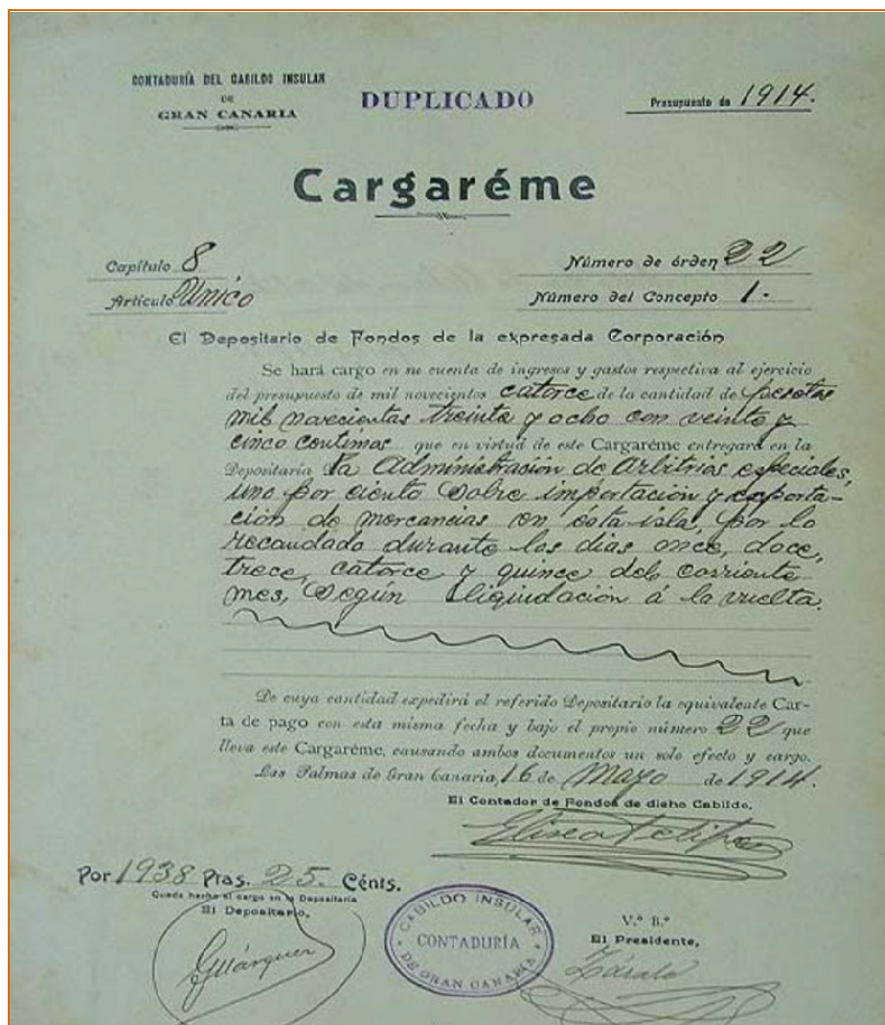 CONTADURÍA DEL CABILDO INSULAR
DE
GRAN CANARIA
DUPLICADO
Presupuesto de 1914.
Cargaréme
Capítulo 8
Número de órden 22
Artículo Unico
Número del Concepto 1.-
El Depositario de Fondos de la expresada Corporación
Se hará cargo en su cuenta de ingresos y gastos respectiva al ejercicio
del presupuesto de mil novecientos catorce de la cantidad de pesetas
mil novecientas treinta y ocho con veinte y
cinco centimos que en virtud de este Cargaréme entregará en la
Depositaría la Administración de Arbitrios especiales,
uno por ciento sobre importación y exporta-
ción de mercancias en ésta isla, por lo
recaudado durante los dias once, doce,
trece, catorce y quince del corriente
mes, según liquidación á la vuelta.
De cuya cantidad expedirá el referido Depositario la equivalente Car-
ta de pago con esta misma fecha y bajo el propio número 22 que
lleva este Cargaréme, causando ambos documentos un solo efecto y cargo.
Las Palmas de Gran Canaria, 16 de Mayo de 1914.
El Contador de Fondos de dicho Cabildo,
Por 1938 Ptas. 25. Cénts.
Queda hecho el cargo en la Depositaría
El Depositario,
CABILDO INSULAR
CONTADURÍA
DE GRAN CANARIA
V.º B.º
El Presidente,